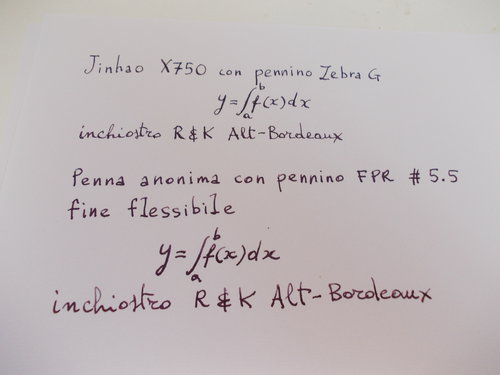 Jinhao X750 con pennino Zebra G
y=∫_a^b f(x)dx
inchiostro R&K Alt-Bordeaux
Penna anonima con pennino FPR # 5.5
fine flessibile
y=∫_a^b f(x)dx
inchiostro R&K Alt-Bordeaux